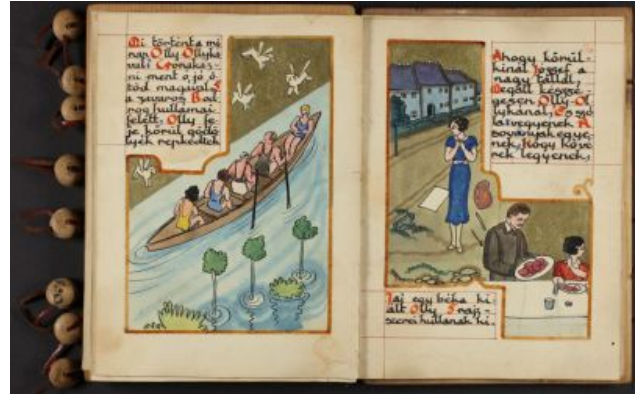 Mi történt a mi
nap Olly Ollyka
val? Csónakáz-
ni ment ő, jó ö
töd magával. S
a zavaros Bod
rog hullámai
felett, Olly fe
je körül gödö
lyék repkedtek
Ahogy körül-
kínál József a
nagy tállal,
Megáll készsé-
gesen Olly-Ol
lykánál, És szól
át vegyenek A
soványak egye-
nek, hogy köve
rek legyenek,
Jaj egy béka ki
ált Olly S rajz-
szerei hullanak ki.